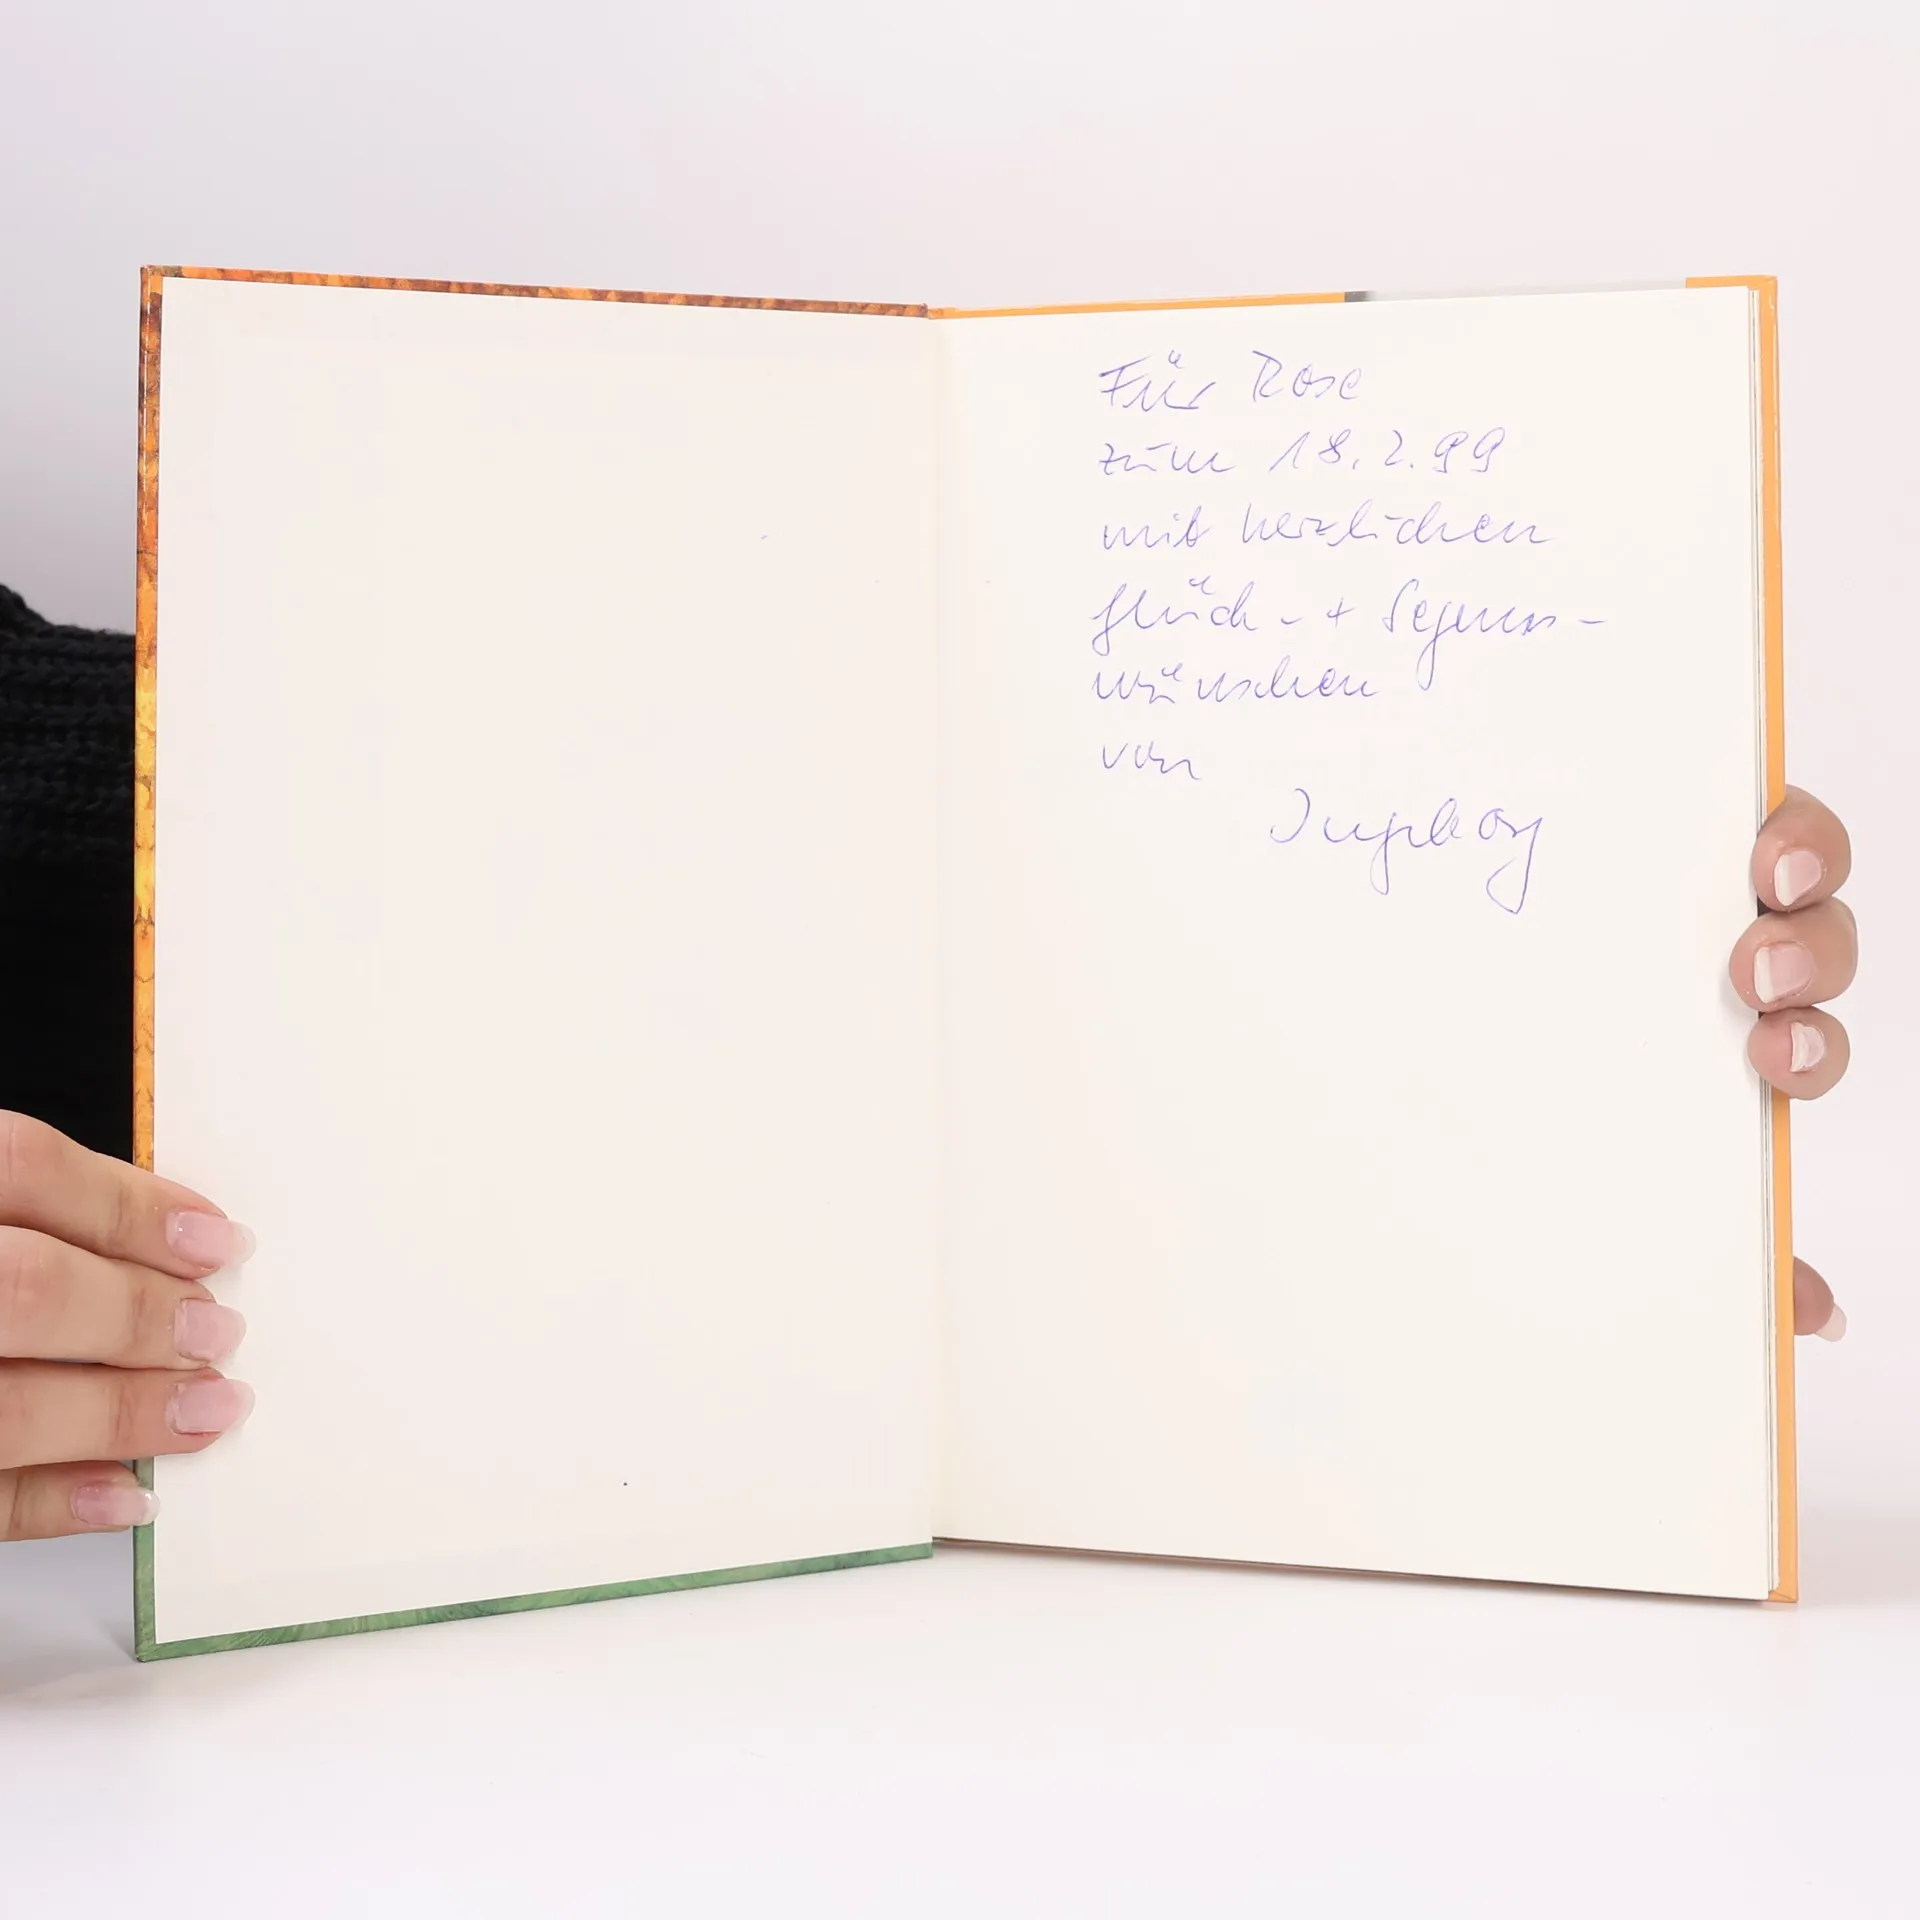 Für Rose
zum 18.2.99
mit herzlichen
Glück- + Segens-
wünschen
von
Ingeborg